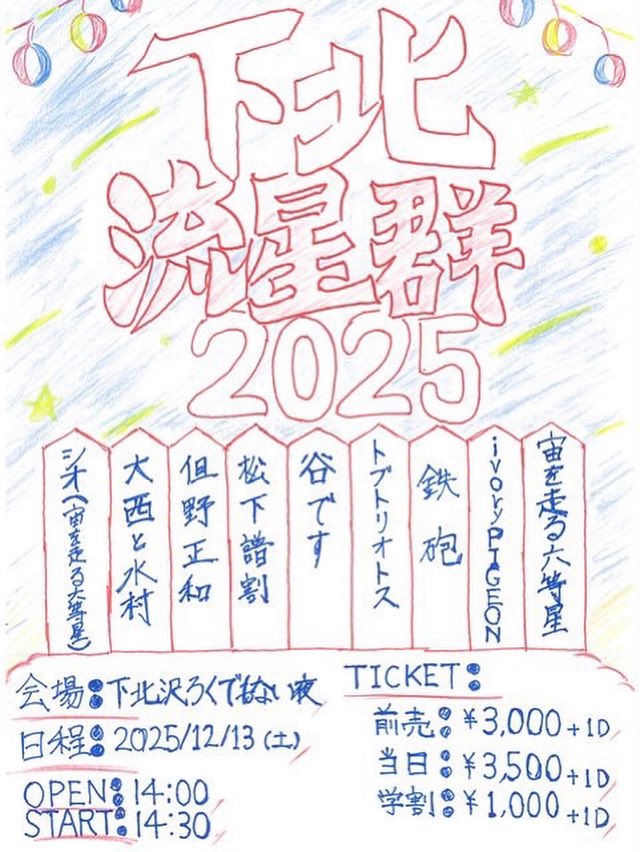 下北
流星群
2025
宙を走る六等星
ivoryPIGEON
鉄砲
トブトリオトス
谷です
松下譜割
但野正和
大西と水村
シオ(宙を走る六等星)
会場:下北沢ろくでもない夜
日程:2025/12/13(土)
OPEN:14:00
START:14:30
TICKET:
前売:¥3,000+1D
当日:¥3,500+1D
学割:¥1,000+1D